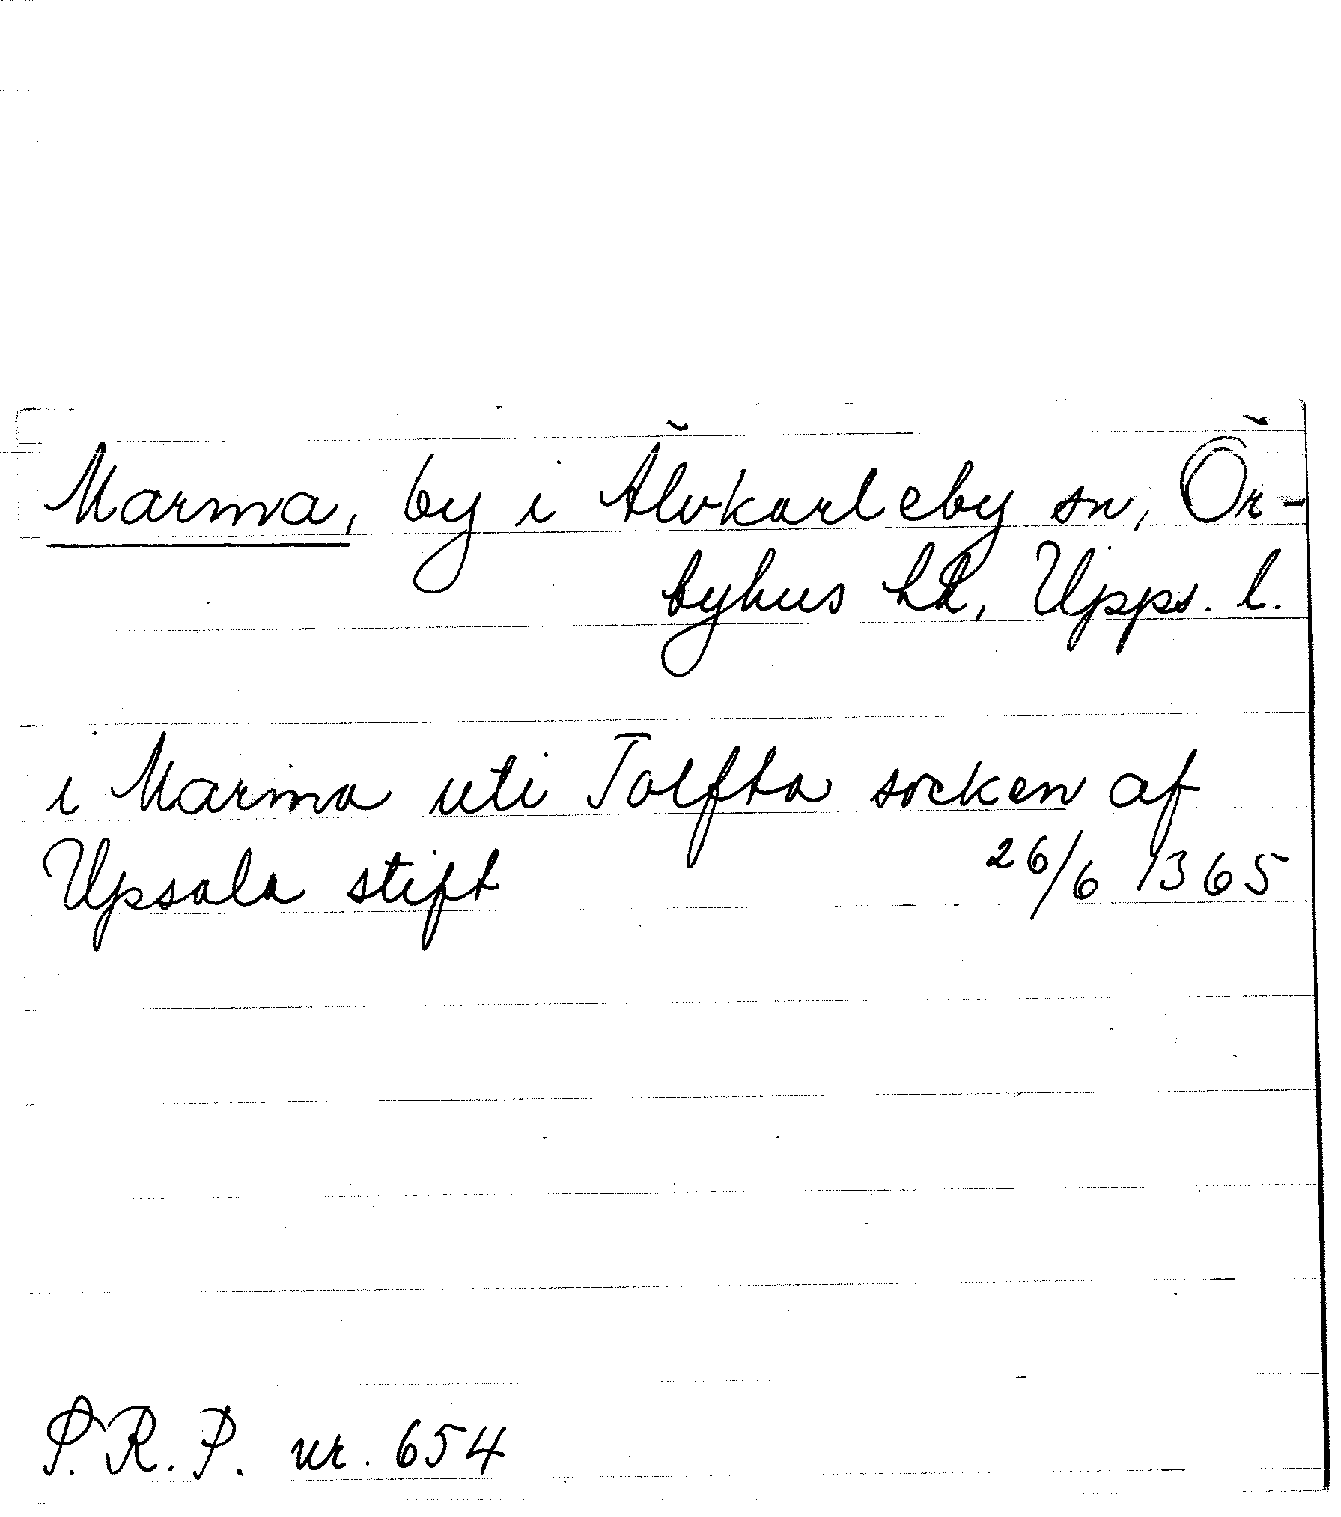 Marma, by i Älvkarleby sn, Ör-
byhus hd, Upps. l.
i Marma uti Tolfta socken af
Upsala stift 26/6 1365
S.R.P. nr. 654